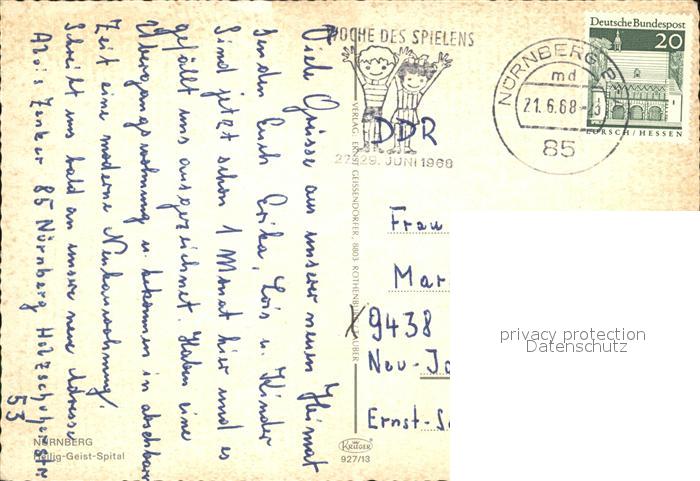 WOCHE DES SPIELENS
27.-29. JUNI 1968
NÜRNBERG 2
md
21.6.68
85
Deutsche Bundespost
20
LORSCH/HESSEN
DDR
Viele Grüsse aus unserer neuen Heimat
senden Euch Erika, Lois u. Kinder
Sind jetzt schon 1 Monat hier und es
gefällt uns ausgezeichnet. Haben eine
Übergangswohnung u. bekommen in absehbarer
Zeit eine moderne Neubauwohnung.
Schreibt uns bald an unsere neue Adresse
Alois Zenker 85 Nürnberg Holzschuherstr
53
VERLAG: ERNST GEISSENDÖRFER, 8803 ROTHENBURG/TAUBER
Frau
Mar
X 9438
Neu-
Ernst-
privacy protection
Datenschutz
NÜRNBERG
Heilig-Geist-Spital
KRÜGER
927/13